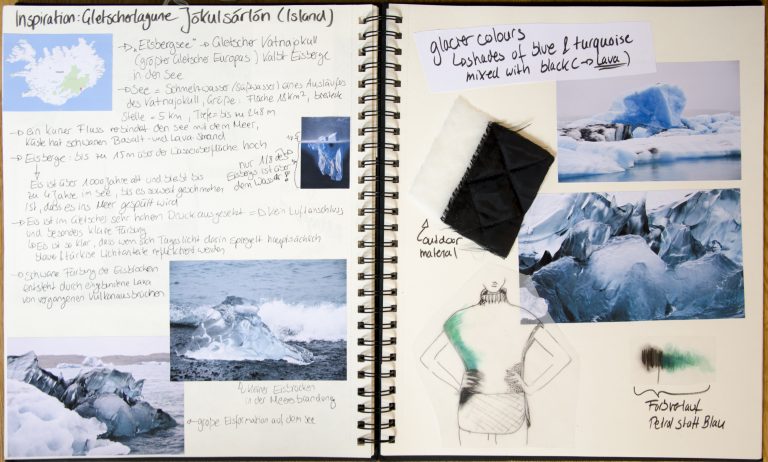 Inspiration: Gletscherlagune Jökulsárlón (Island)
→ D„Eisbergsee" → Gletscher Vatnajökull
(größter Gletscher Europas) kalbt Eisberge
in den See
→ See = Schmelzwasser (Süßwasser) eines Ausläufers
des Vatnajökull, Größe: Fläche 18 km², breiteste
Stelle = 5 km, Tiefe = bis zu 248 m
→ ein kurzer Fluss verbindet den See mit dem Meer,
Küste hat schwarzen Basalt- und Lava-Strand
→ Eisberge: bis zu 15m über der Wasseroberfläche hoch
nur 1/8 des
Eisbergs ist über
dem Wasser!
Eis ist über 1000 Jahre alt und bleibt bis
zu Jahre im See, bis es soweit geschmolzen
ist, dass es ins Meer gespült wird
→ Eis ist im Gletscher sehr hohem Druck ausgesetzt = D kein Lufteinschluss
und besonders klare Färbung
↳ Eis ist so klar, dass wenn sich Tageslicht darin spiegelt hauptsächlich
blaue & türkise Lichtanteile reflektiert werden
→ schwarze Färbung der Eisbrocken
entsteht durch eingebundene Lava
von vergangenen Vulkanausbrüchen
↳ kleiner Eisbrocken
in der Meeresbrandung
große Eisformation auf dem See
glacier colours
↳ shades of blue & turquoise
mixed with black (→ Lava)
outdoor
material
Farbverlauf
Petrol statt Blau